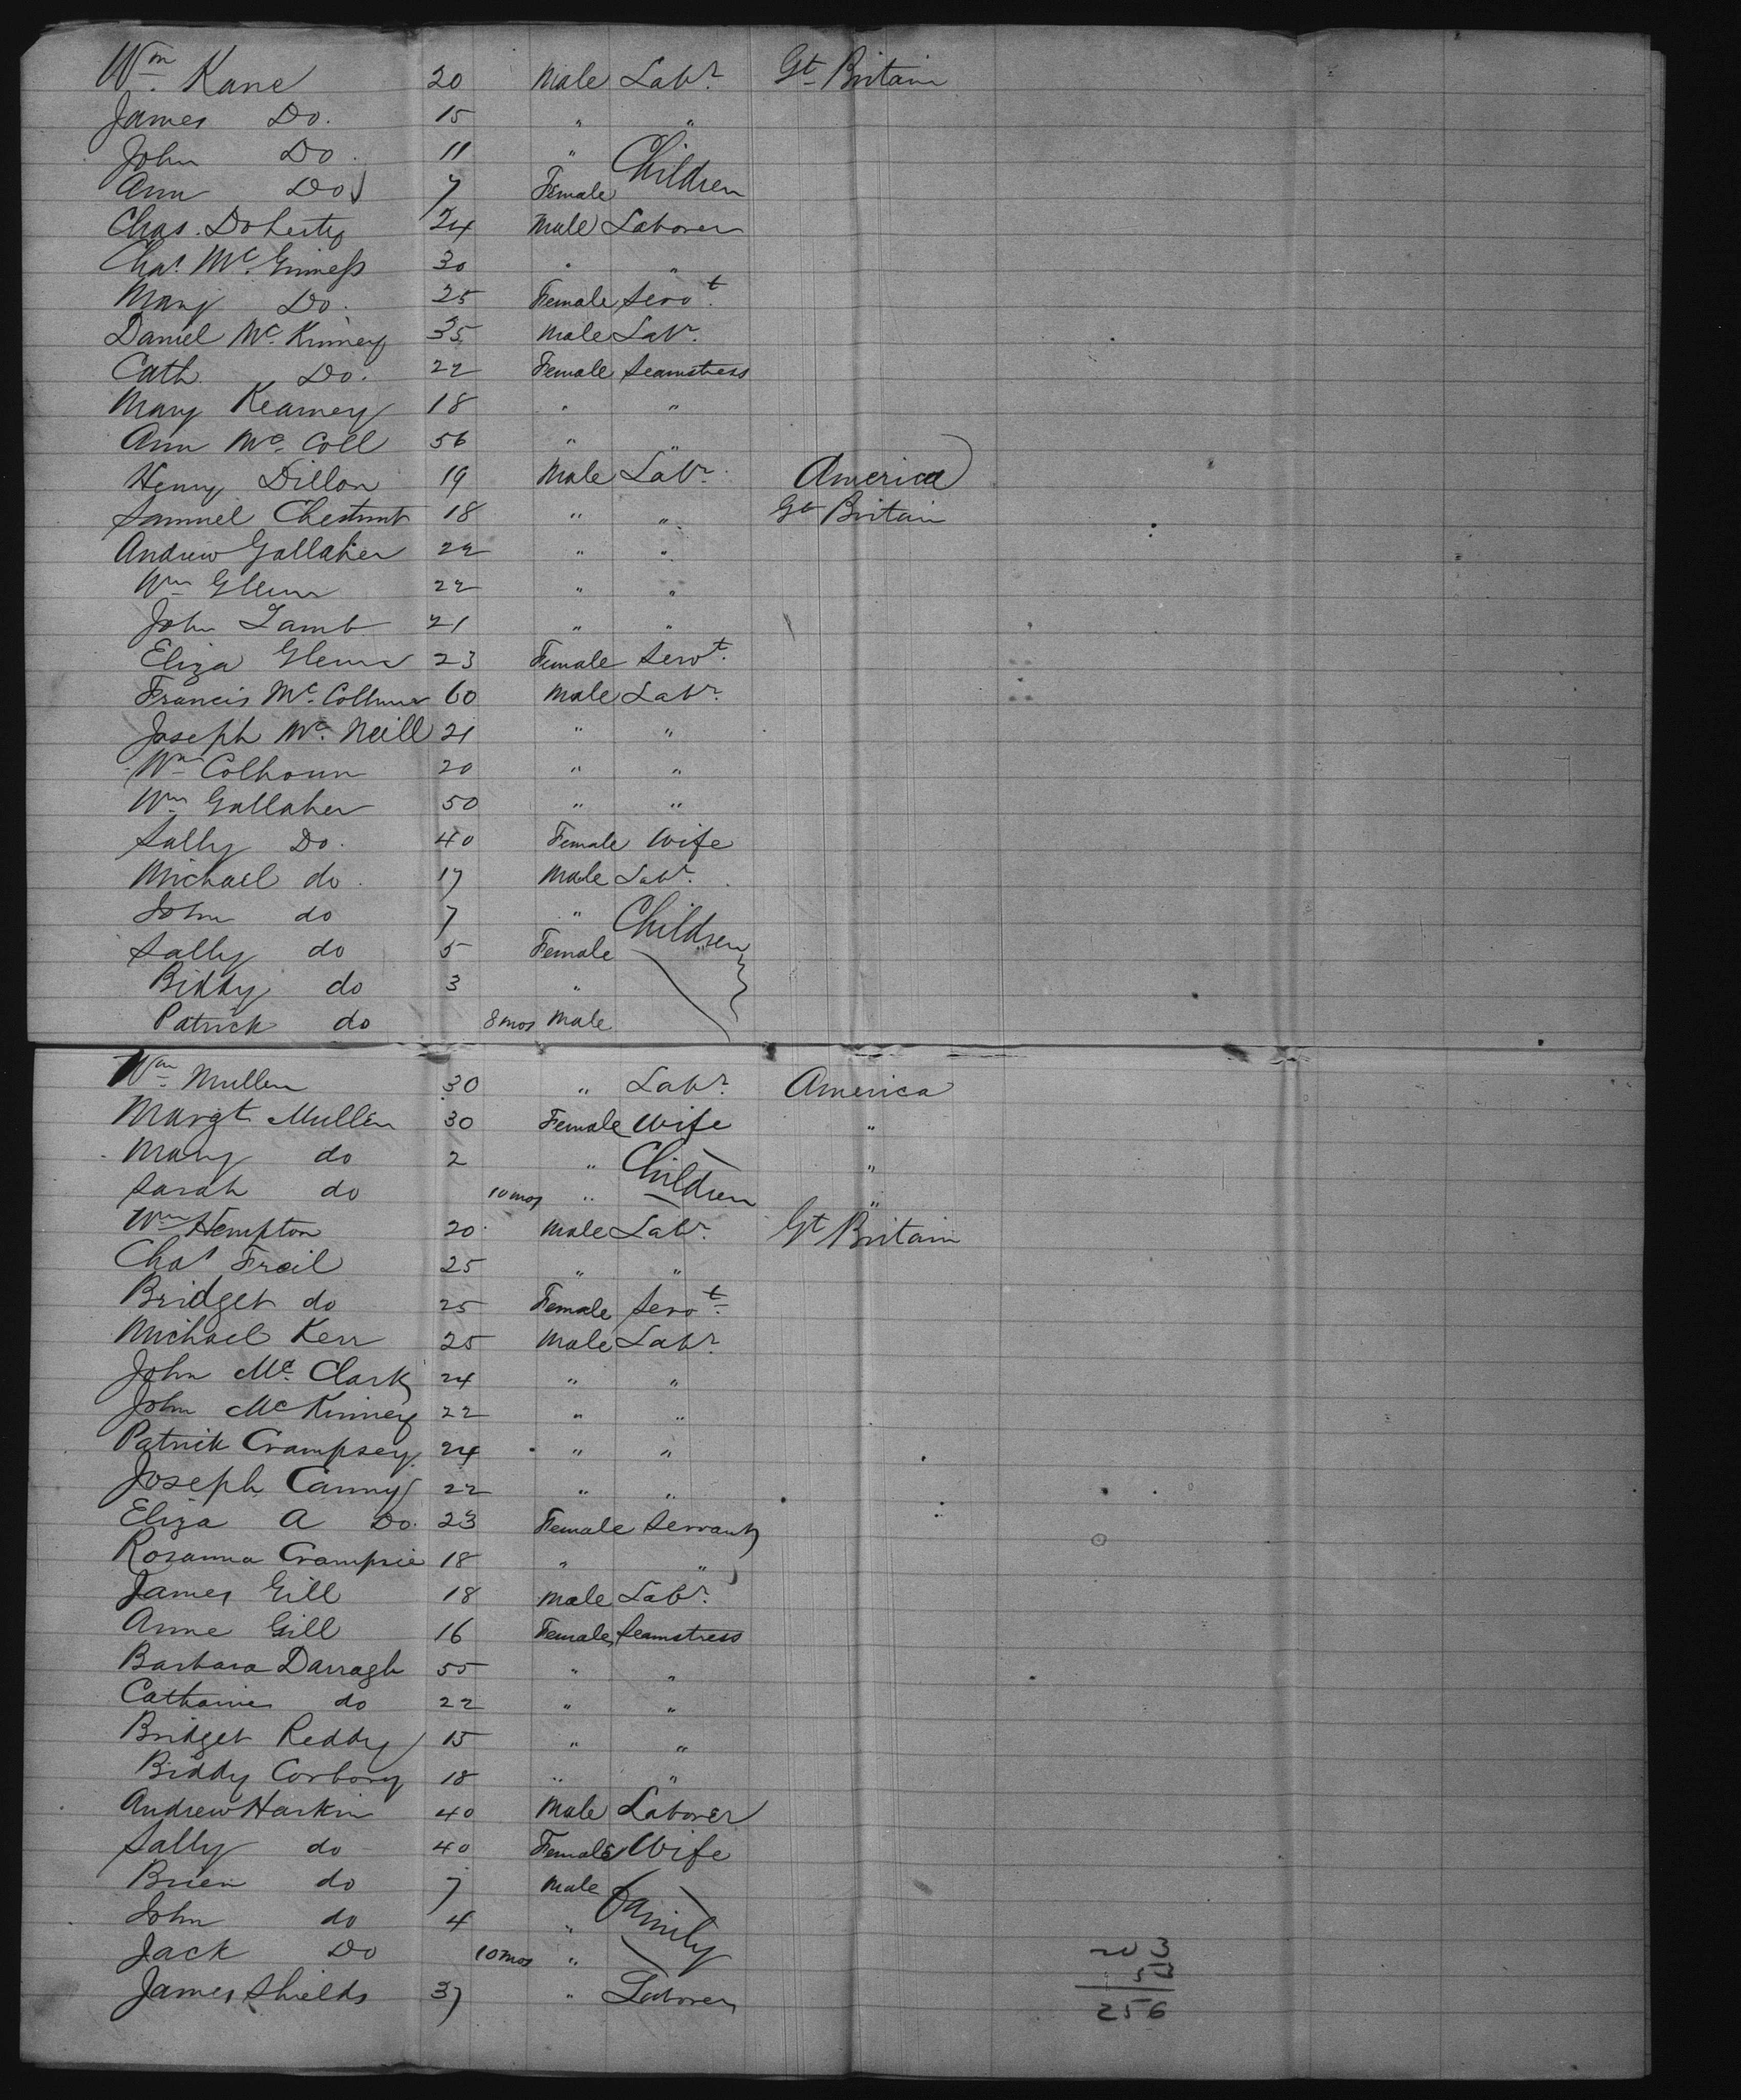 Wm. Kane 20 Male Labr. Gt Britain
James Do. 15 " "
John Do. 11 " Children
Ann Do 7 Female
Chas. Doherty 24 Male Laborer
Chas. McGuiness 30 " "
Mary Do. 25 Female Servt.
Daniel McKinney 35 Male Labr.
Cath. Do. 22 Female Seamstress
Mary Kearney 18 " "
Ann McColl 56 " "
Henry Dillon 19 Male Labr. America
Samuel Chestnut 18 " " Gt Britain
Andrew Gallaher 22 " "
Wm Glenn 22 " "
John Lamb 21 " "
Eliza Glenn 23 Female Servt.
Francis Mc. 60 Male Labr.
Joseph McNeill 21 " "
Wm Colhoun 20 " "
Wm Gallaher 50 " "
Sally Do. 40 Female Wife
Michael do. 17 Male Labr.
John do 7 " Children
Sally do 5 Female "
Biddy do 3 "
Patrick do 8 mos Male
Wm. Mullen 30 " Labr. America
Margt Mullen 30 Female Wife "
Mary do 2 " Children "
Sarah do 10 mos " "
Wm Hempton 20 Male Labr. Gt Britain
Chas Freil 25 " "
Bridget do 25 Female Servt.
Michael Kerr 25 Male Labr.
John Mc. Clark 24 " "
John McKinney 22 " "
Patrick Crampsey 24 " "
Joseph Canny 22 " "
Eliza A Do. 23 Female Servant
Rosanna Crampsie 18 " "
James Gill 18 Male Labr.
Anne Gill 16 Female Seamstress
Barbara Darragh 55 " "
Catharine do 22 " "
Bridget Reddy 15 " "
Biddy 18 " "
Andrew Harkin 40 Male Laborer
Sally do 40 Female Wife
Brien do 7 Male Family
John do 4 "
Jack Do 10 mos "
James Shields 37 " Laborer
203
53
256